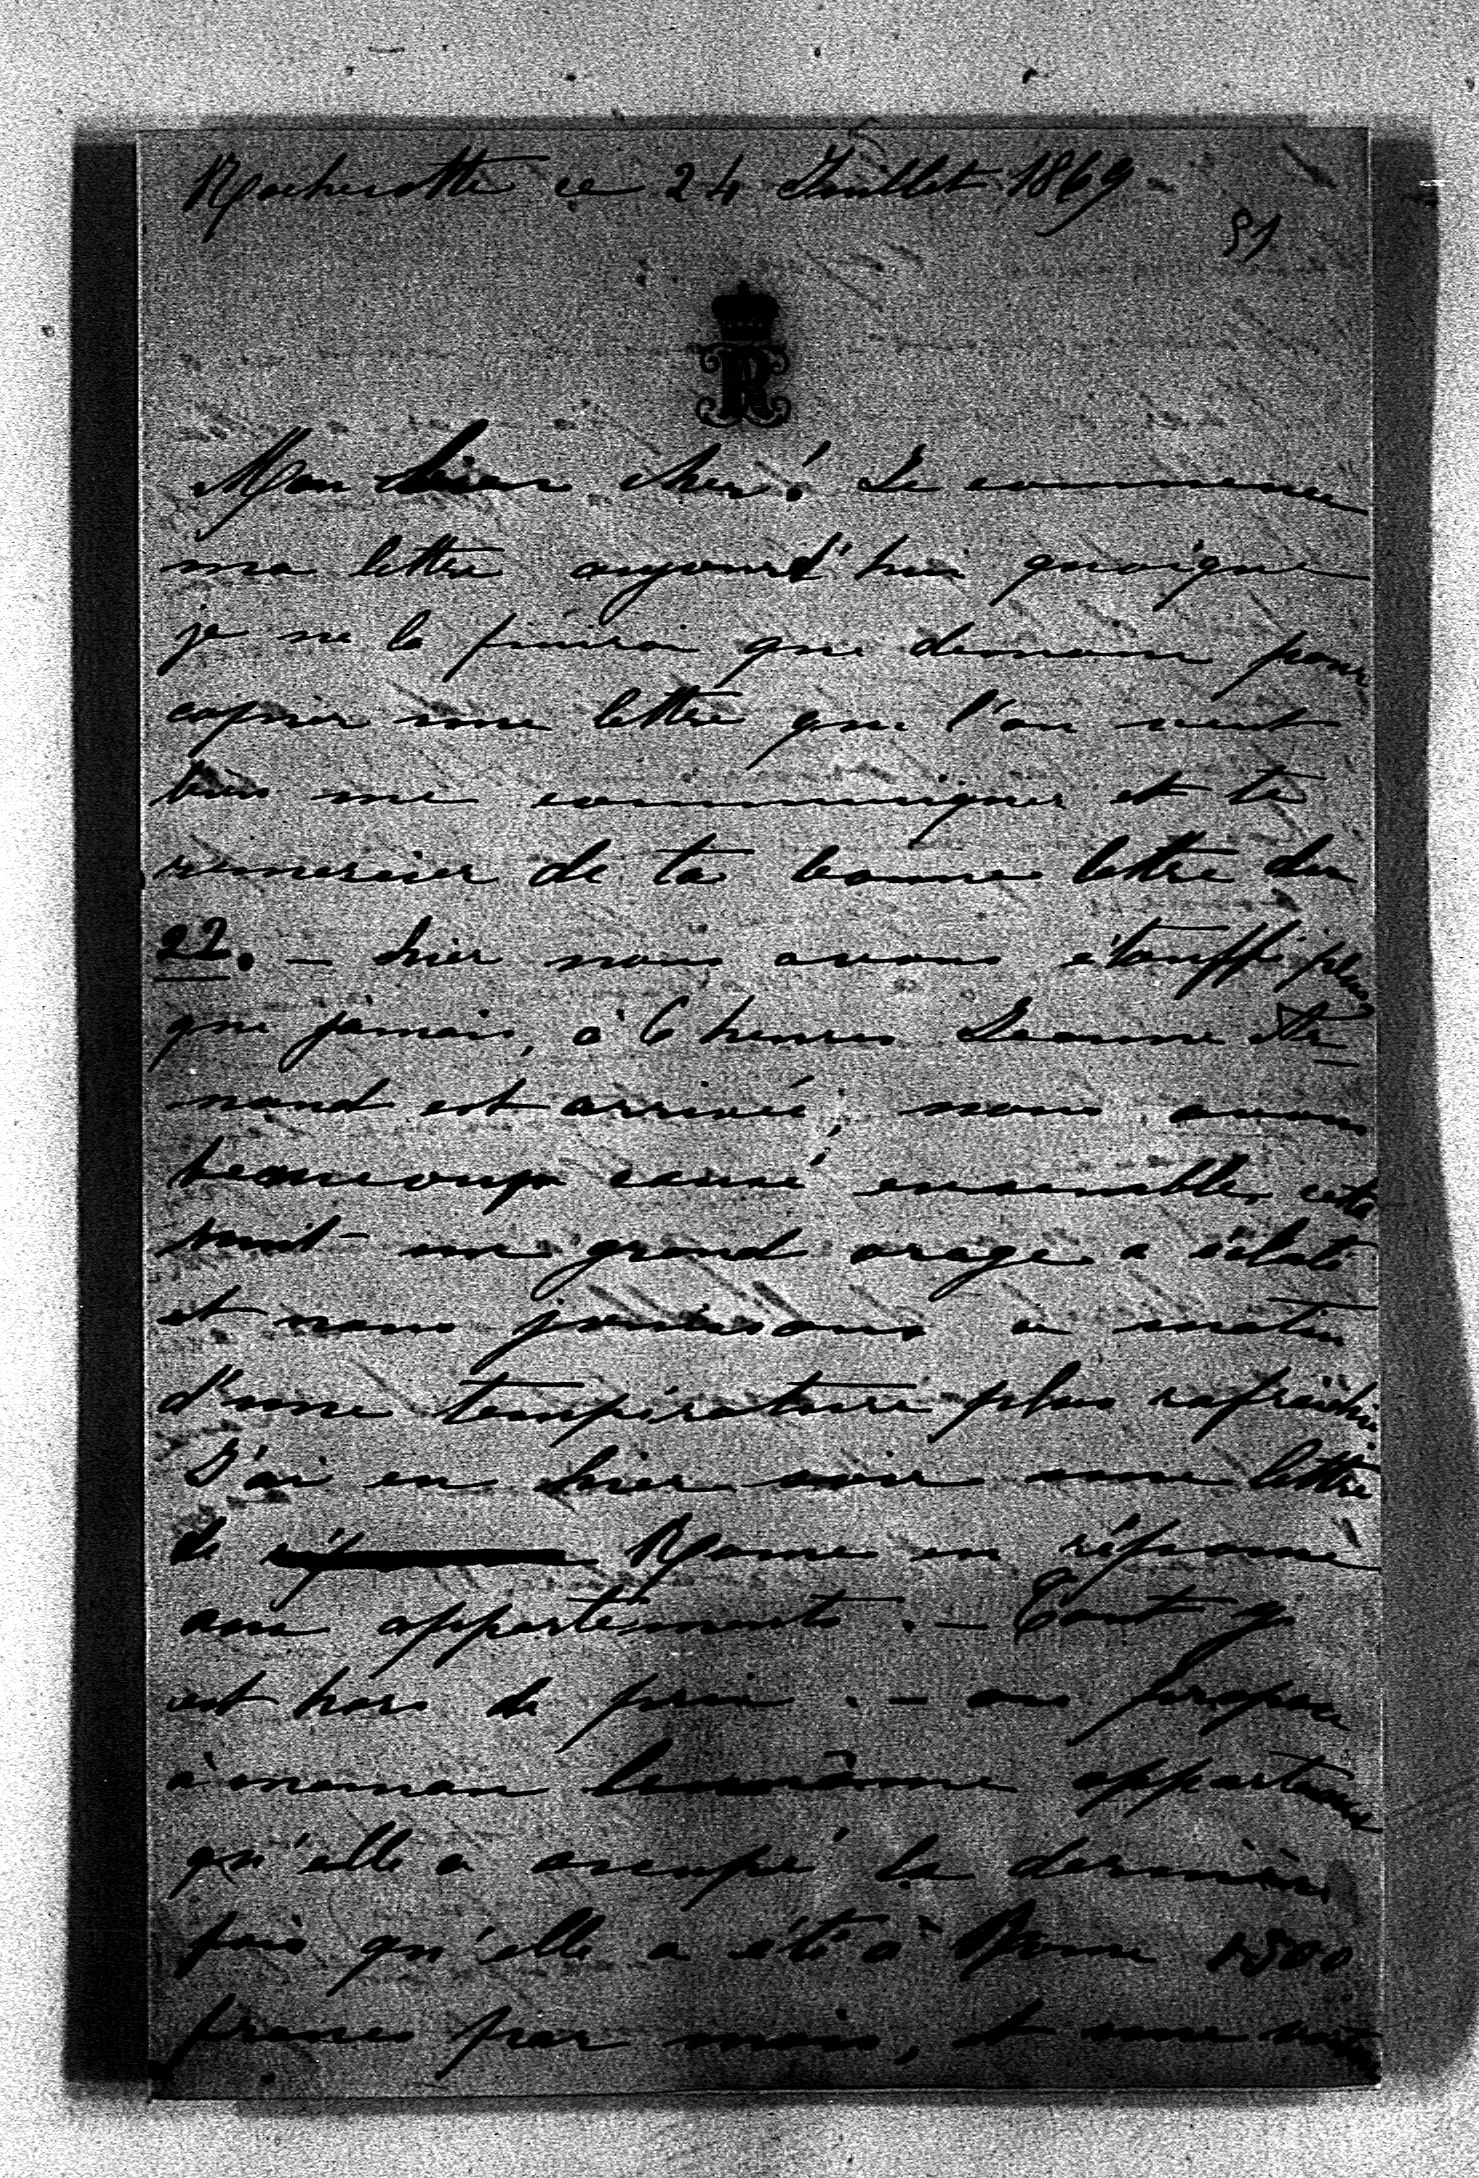 Rochecotte ce 24 Juillet 1869
51
R
Mon bien cher! Je commence
ma lettre aujourd'hui quoique
je ne la finirai que demain pour
copier une lettre que l'on veut
bien me communiquer et te
remercier de ta bonne lettre du
22. – hier nous avons étouffé plus
que jamais, à 6 heures Jeanne
est arrivée, nous avons
beaucoup causé ensemble, cette
nuit un grand orage a éclaté
et nous jouissons ce matin
d'une température plus rafraichie.
J'ai eu hier soir une lettre
de Rome en réponse
aux appartements. – Tout y
est hors de prix. – on propose
à maman appartement
qu'elle a occupé la dernière
fois qu'elle a été à Rome 1500
francs par mois, et une